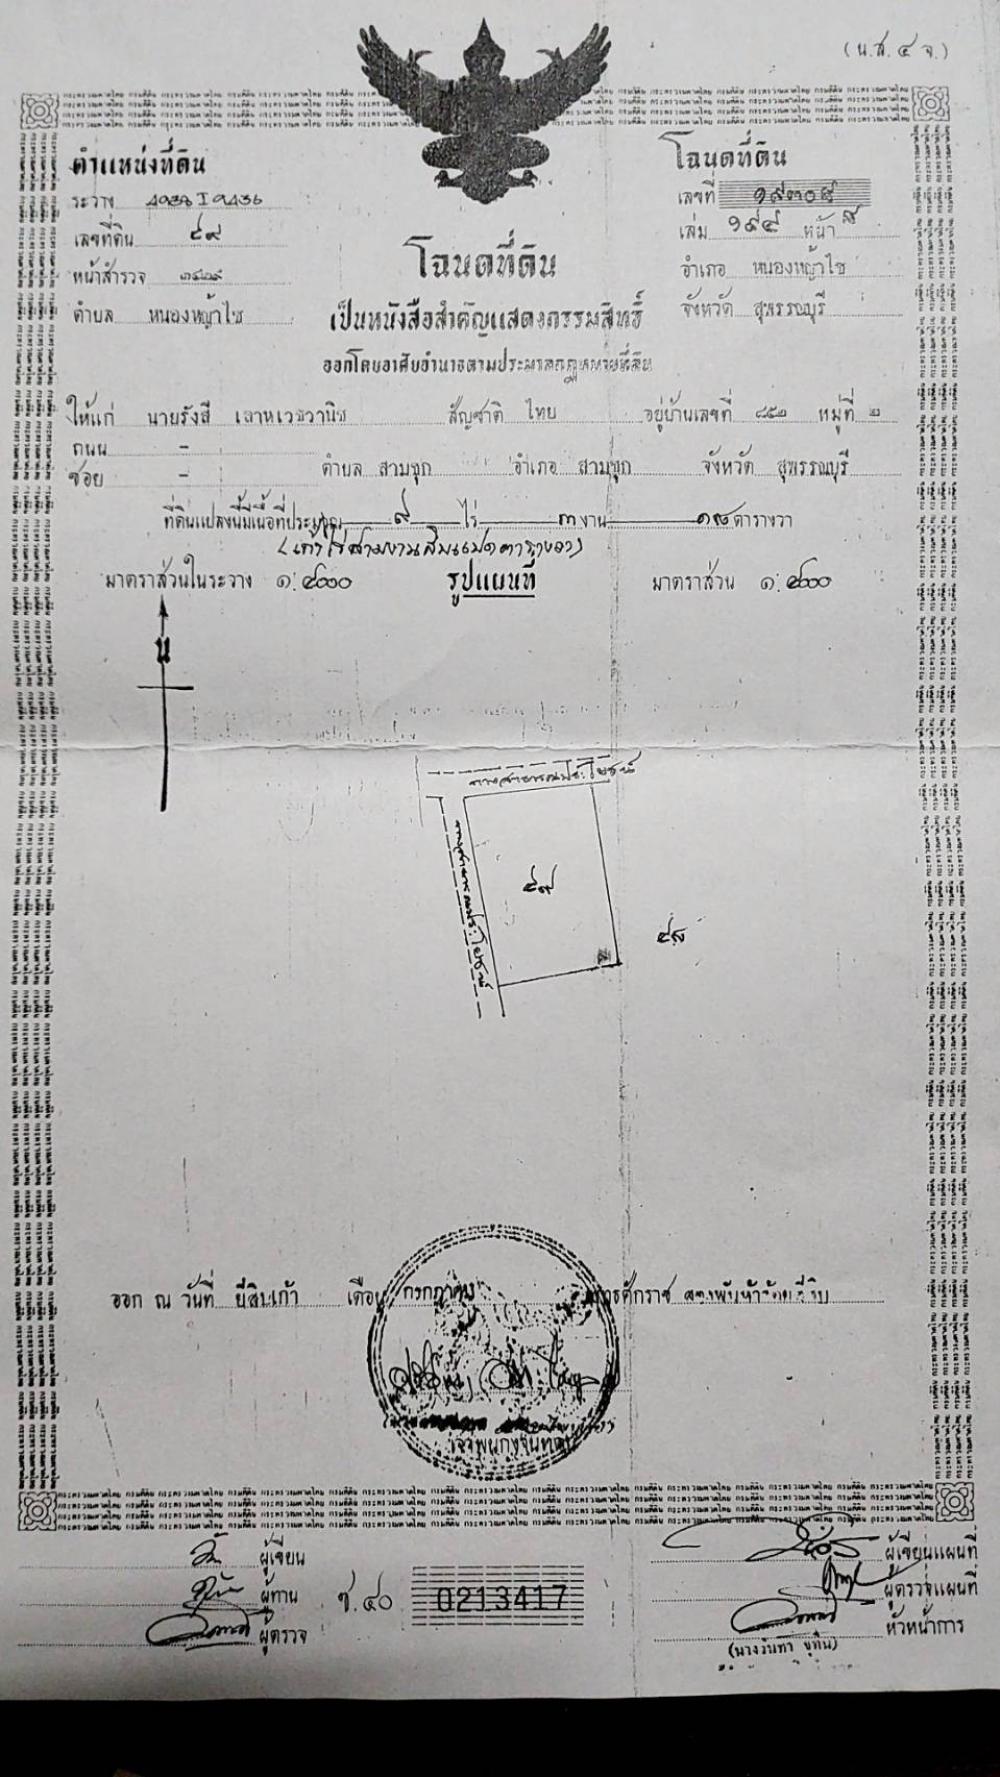 (น.ส. ๔ จ.)
ตำแหน่งที่ดิน
ระวาง 4938 I 9436
เลขที่ดิน ๕๙
หน้าสำรวจ
ตำบล หนองหญ้าไซ
โฉนดที่ดิน
เลขที่ ๑๙๓๐๕
เล่ม ๑๙๔ หน้า ๕
อำเภอ หนองหญ้าไซ
จังหวัด สุพรรณบุรี
โฉนดที่ดิน
เป็นหนังสือสำคัญแสดงกรรมสิทธิ์
ออกโดยอาศัยอำนาจตามประมวลกฎหมายที่ดิน
ให้แก่ นายรังสี เลาหเวชวานิช สัญชาติ ไทย อยู่บ้านเลขที่ ๘๕๒ หมู่ที่ ๒
ถนน -
ซอย - ตำบล สามชุก อำเภอ สามชุก จังหวัด สุพรรณบุรี
ที่ดินแปลงนี้มีเนื้อที่ประมาณ ๙ ไร่ ๓ งาน ๑๘ ตารางวา
(เก้าไร่สามงานสิบแปดตารางวา)
มาตราส่วนในระวาง ๑:๔๐๐๐ รูปแผนที่ มาตราส่วน ๑:๔๐๐๐
น
ทางสาธารณประโยชน์
ทางสาธารณประโยชน์
๕๙
๕๘
ออก ณ วันที่ ยี่สิบเก้า เดือน กรกฎาคม พุทธศักราช สองพันห้าร้อยสี่สิบ
เจ้าพนักงานที่ดิน
ผู้เขียน
ผู้ทาน
ผู้ตรวจ
ช.๔๐ 0213417
ผู้เขียนแผนที่
ผู้ตรวจแผนที่
หัวหน้าการ
(นางวันทา ชูทีน)